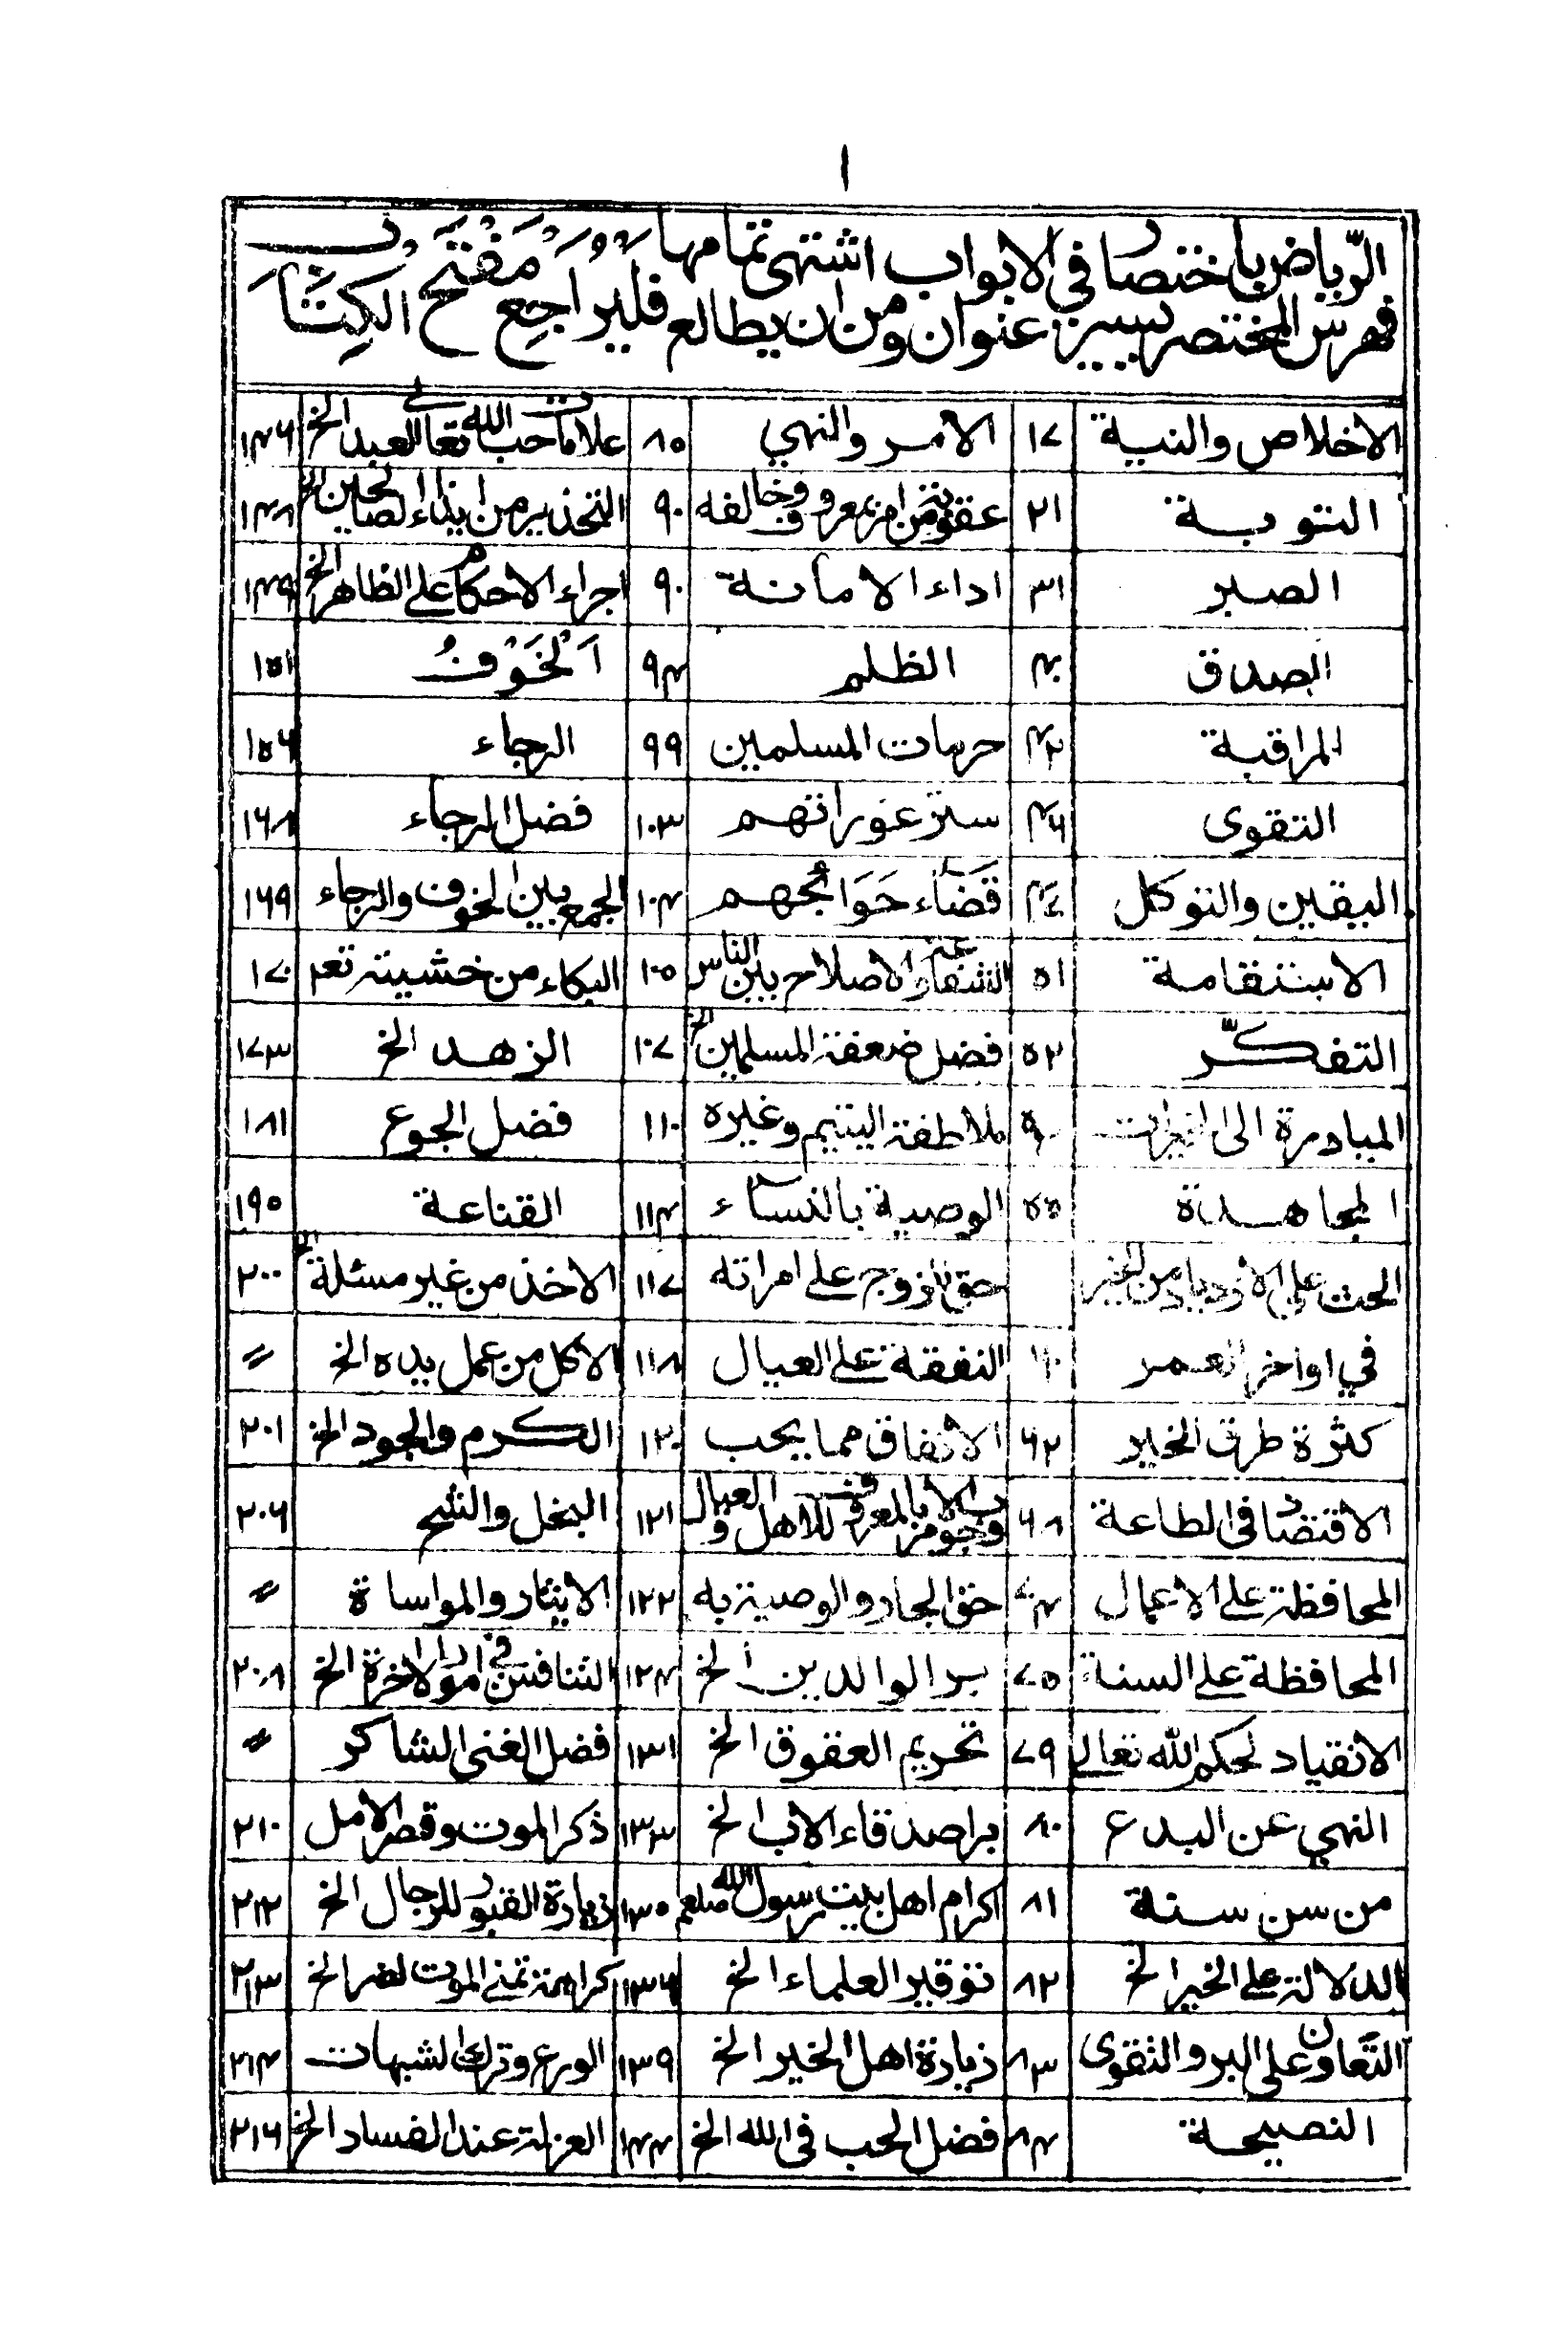 ١
فهرس المختصر يسير عنوان ومن ان يطالع فليراجع مفتح الكتاب
الرياض باختصار في الابواب اشتهى تمامها
الاخلاص والنية ١٧ الامر والنهي ٨٥ علامات حب الله تعالى للعبد الخ ١٤٦
التوبة ٢١ عقوبة من امر بمعروف وخالفه ٩٠ التحذير من ايذاء الصالحين الخ ١٤٨
الصبر ٣١ اداء الامانة ٩٠ اجراء الاحكام على الظاهر الخ ١٤٩
الصدق ٤٠ الظلم ٩٤ اَلْخَوْفُ ١٥١
المراقبة ٤٢ حرمات المسلمين ٩٩ الرجاء ١٥٦
التقوى ٤٦ ستر عوراتهم ١٠٣ فضل الرجاء ١٦٨
اليقين والتوكل ٤٧ قضاء حوائجهم ١٠٤ الجمع بين الخوف والرجاء ١٦٩
الاستقامة ٥١ الشفاعة والاصلاح بين الناس ١٠٥ البكاء من خشيته تعم ١٧٠
التفكّر ٥٢ فضل ضعفة المسلمين الخ ١٠٧ الزهد الخ ١٧٣
المبادرة الى الخيرات ملاطفة اليتيم وغيره ١١٠ فضل الجوع ١٨١
المجاهدة ٥٥ الوصية بالنساء ١١٤ القناعة ١٩٥
الحث على الازدياد من الخير حق الزوج على امراته ١١٧ الاخذ من غير مسئلة الخ ٢٠٠
في اواخر العمر ٦٠ النفقة على العيال ١١٨ الاكل من عمل يده الخ 〃
كثرة طرق الخير ٦٢ الانفاق مما يحب ١٢٠ الكرم والجود الخ ٢٠١
الاقتصاد فى الطاعة ٦٨ وجوب الامر بالمعروف للاهل والعيال ١٢١ البخل والشح ٢٠٦
المحافظة على الاعمال ٧٤ حق الجار والوصية به ١٢٢ الايثار والمواساة 〃
المحافظة على السنة ٧٥ بر الوالدين الخ ١٢٤ التنافس في امور الاخرة الخ ٢٠٨
الانقياد لحكم الله تعالى ٧٩ تحريم العقوق الخ ١٣١ فضل الغنى الشاكر 〃
النهي عن البدع ٨٠ بر اصدقاء الاب الخ ١٣٣ ذكر الموت وقصر الامل ٢١٠
من سن سنة ٨١ اكرام اهل بيت رسول الله صلعم ١٣٥ زيارة القبور للرجال الخ ٢١٢
الدلالة على الخير الخ ٨٢ توقير العلماء الخ ١٣٦ كراهة تمني الموت لضر الخ ٢١٣
التعاون على البر والتقوى ٨٣ زيارة اهل الخير الخ ١٣٩ الورع وترك الشبهات ٢١٤
النصيحة ٨٤ فضل الحب فى الله الخ ١٤٤ العزلة عند الفساد الخ ٢١٦